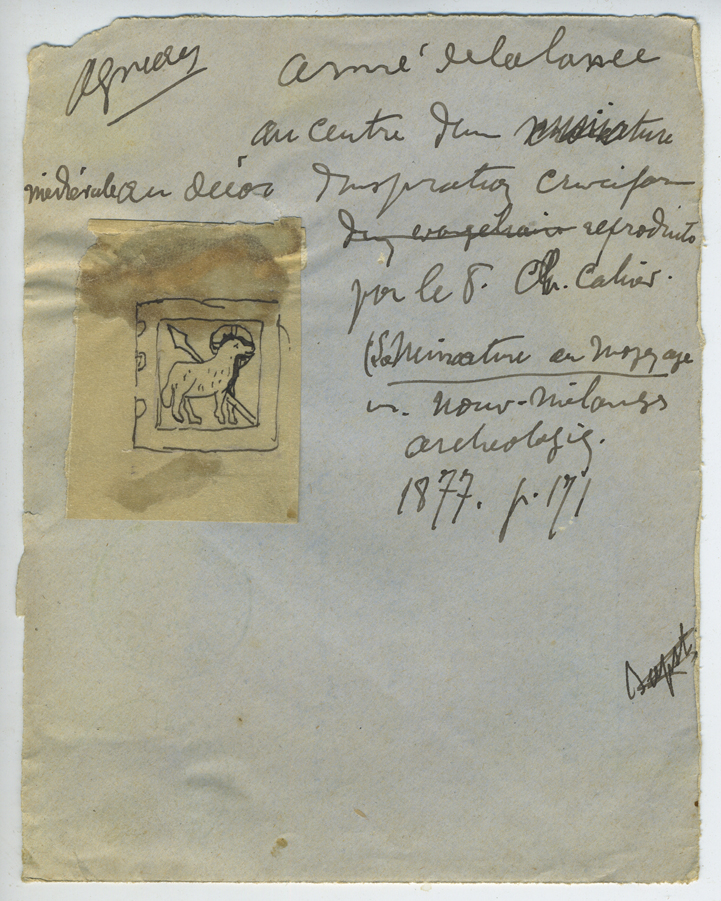 Agneau
armé de la lance
au centre d'un miniature
médiévale au décor d'inspiration cruciforme
d'un évangéliaire reproduite
par le P. Ch. Cahier.
(La Miniature au Moyen age
in. Nouv. Mélanges
archéologiq.
1877. p. 171